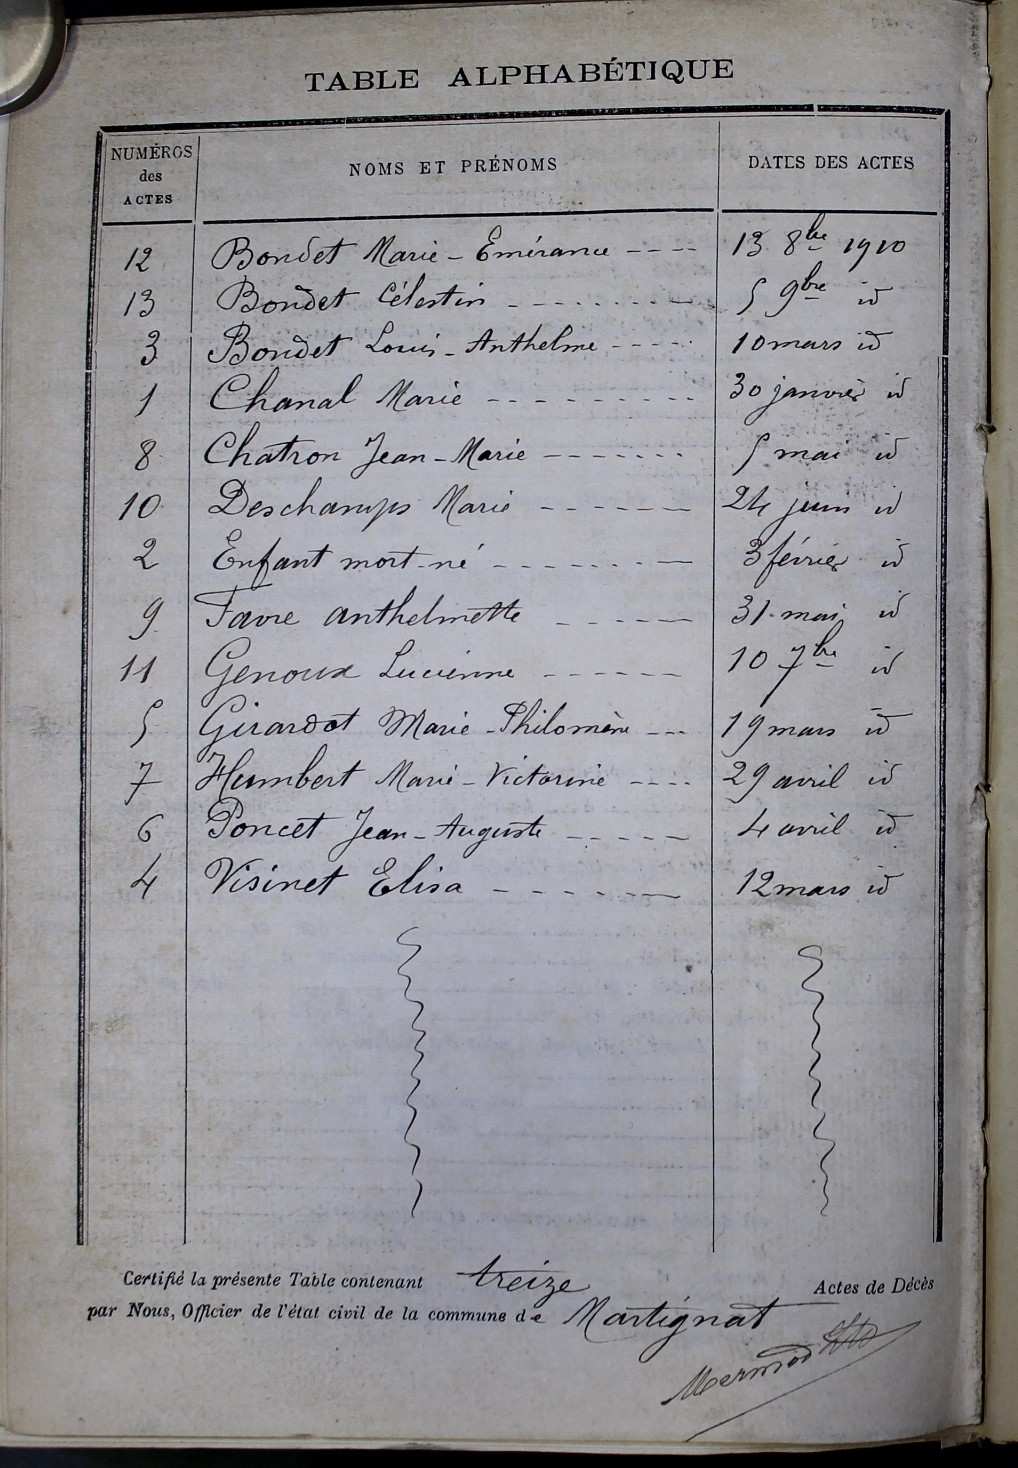 TABLE ALPHABÉTIQUE
NUMÉROS des ACTES NOMS ET PRÉNOMS DATES DES ACTES
12 Bondet Marie-Emérance 13 8bre 1910
13 Bondet Célestin 5 9bre id
3 Bondet Louis-Anthelme 10 mars id
1 Chanal Marie 30 janvier id
8 Chatron Jean-Marie 5 mai id
10 Deschamps Marie 24 juin id
2 Enfant mort-né 3 février id
9 Favre anthelmette 31 mai id
11 Genoux Lucienne 10 7bre id
5 Girardot Marie-Philomène 19 mars id
7 Humbert Marie-Victorine 29 avril id
6 Poncet Jean-Auguste 4 avril id
4 Visinet Elisa 12 mars id
Certifié la présente Table contenant treize Actes de Décès
par Nous, Officier de l'état civil de la commune de Martignat
Mermod